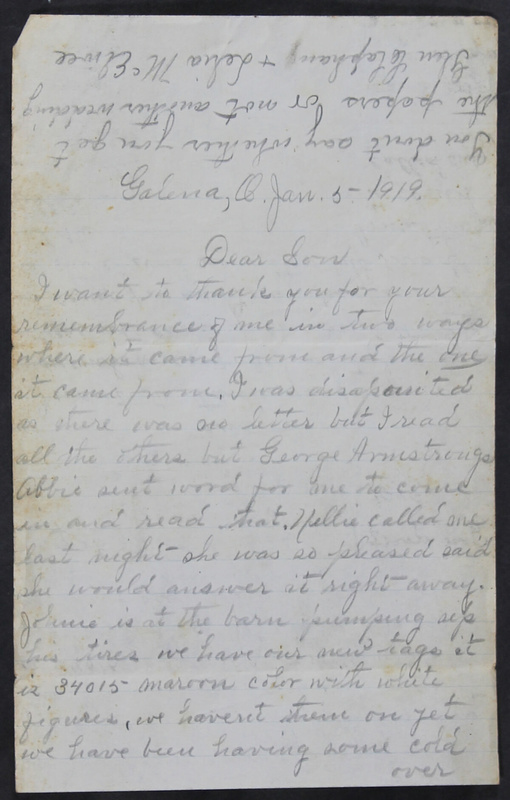 Galena, O. Jan. 5 - 1919.
Dear Son
I want to thank you for your
remembrance of me in two ways
where it came from and the one
it came from. I was disapointed
as there was no letter but I read
all the others but George Armstrongs
Abbie sent word for me to come
in and read that. Nellie called me
last night she was so pleased said
she would answer it right away.
Johnie is at the barn pumping up
his tires we have our new tags it
is 34015 maroon color with white
figures, we havent them on yet
we have been having some cold
over
You don't say whether you get
the papers or not another wedding
Glen Clapham + Lelia McElwee